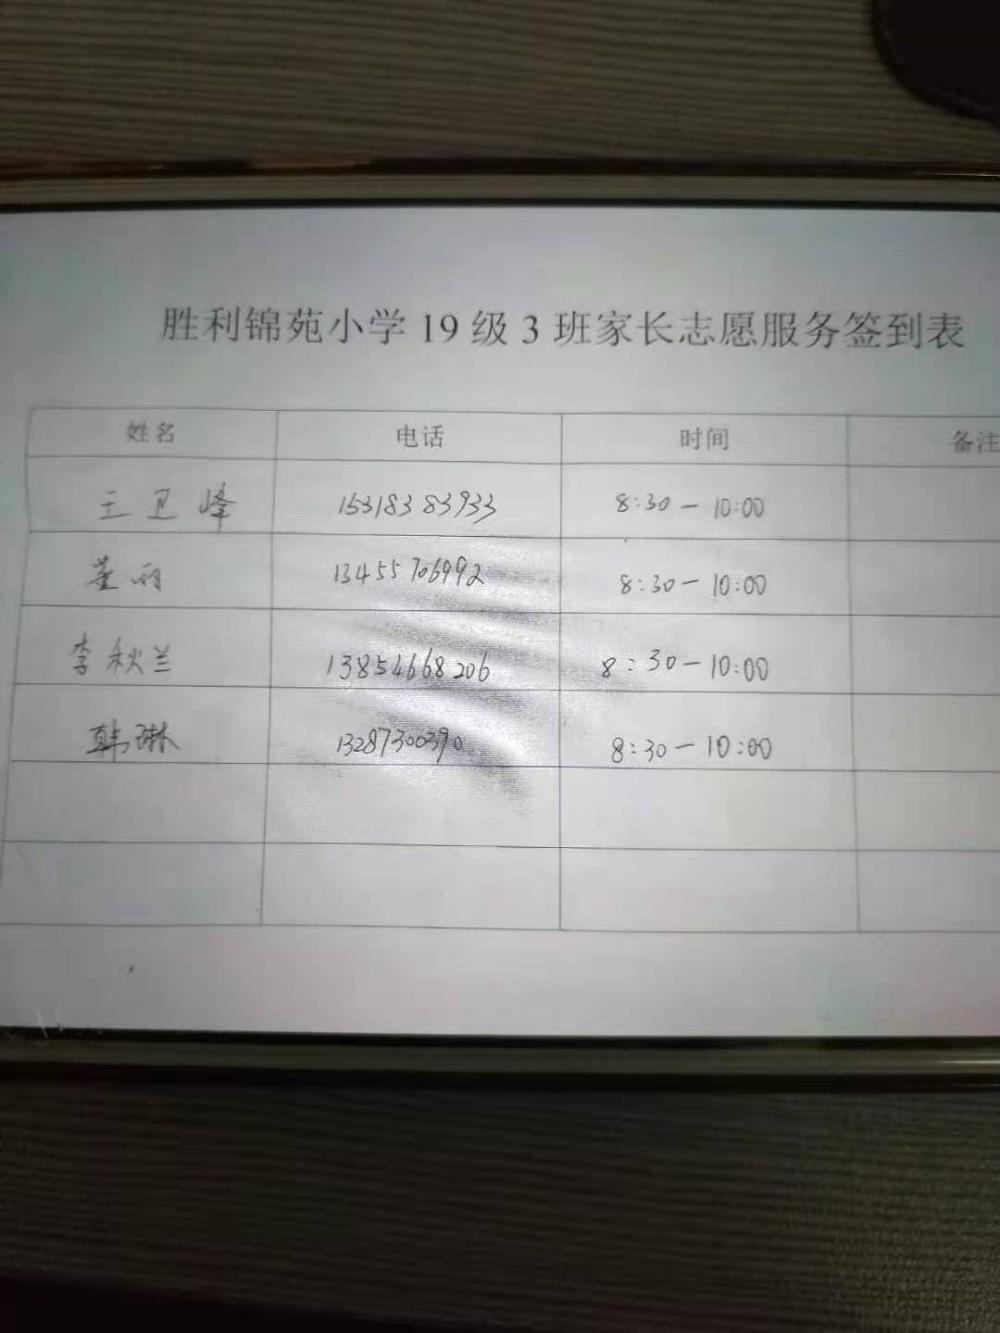 胜利锦苑小学 19 级 3 班家长志愿服务签到表
姓名 电话 时间 备注
王卫峰 15318383933 8:30－10:00
董丽 13455706992 8:30－10:00
李秋兰 13854668206 8:30－10:00
韩琳 13287300390 8:30－10:00